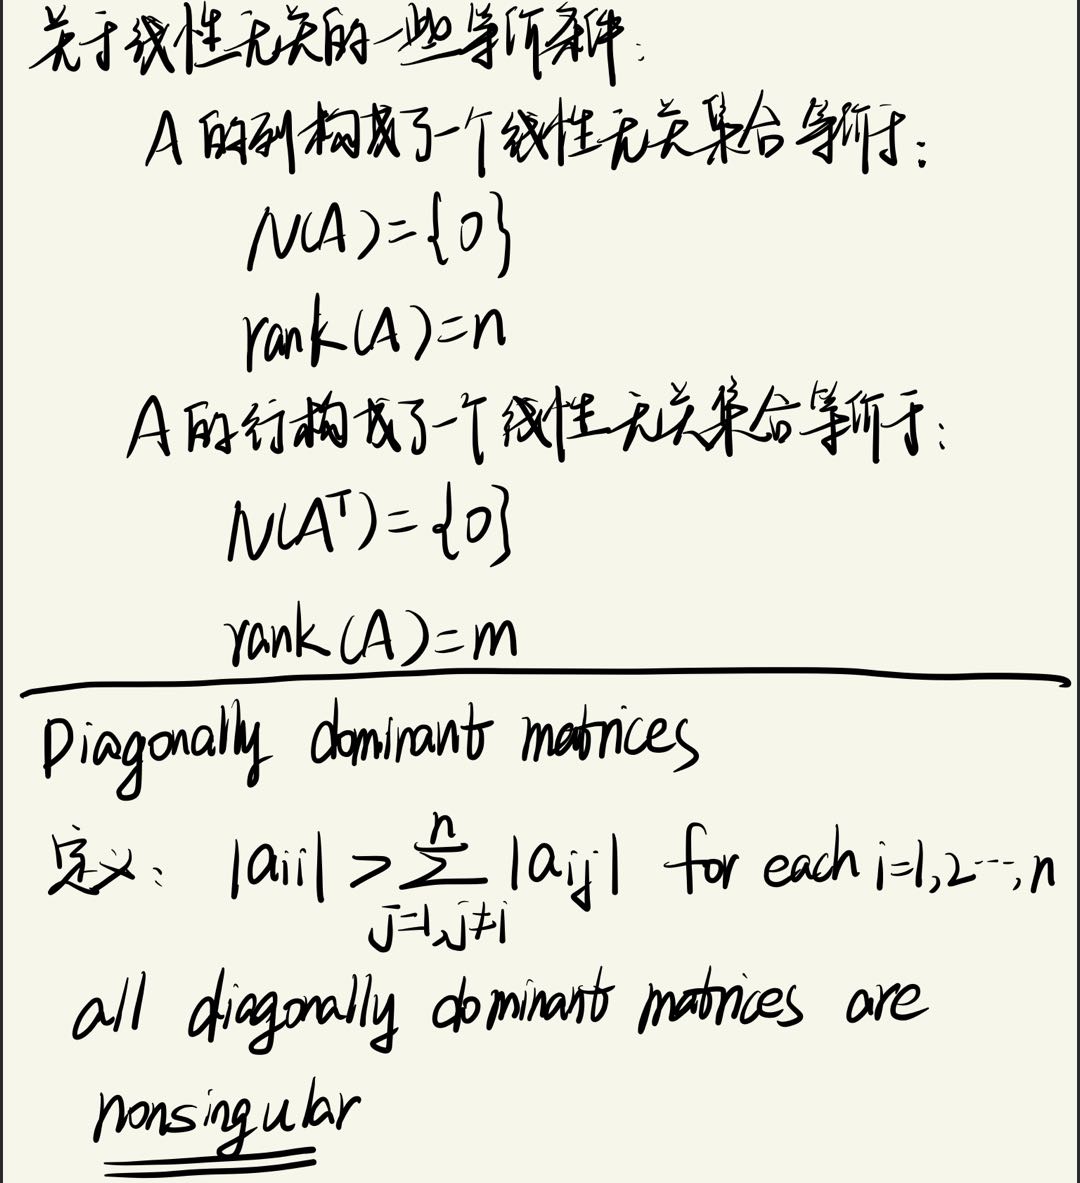 关于线性无关的一些等价条件:
A的列构成了一个线性无关集合等价于:
N(A)={0}
rank(A)=n
A的行构成了一个线性无关集合等价于:
N(Aᵀ)={0}
rank(A)=m
Diagonally dominant matrices
定义: |aii| > ∑_{j=1,j≠i}^{n} |aij| for each i=1,2…,n
all diagonally dominant matrices are
nonsingular